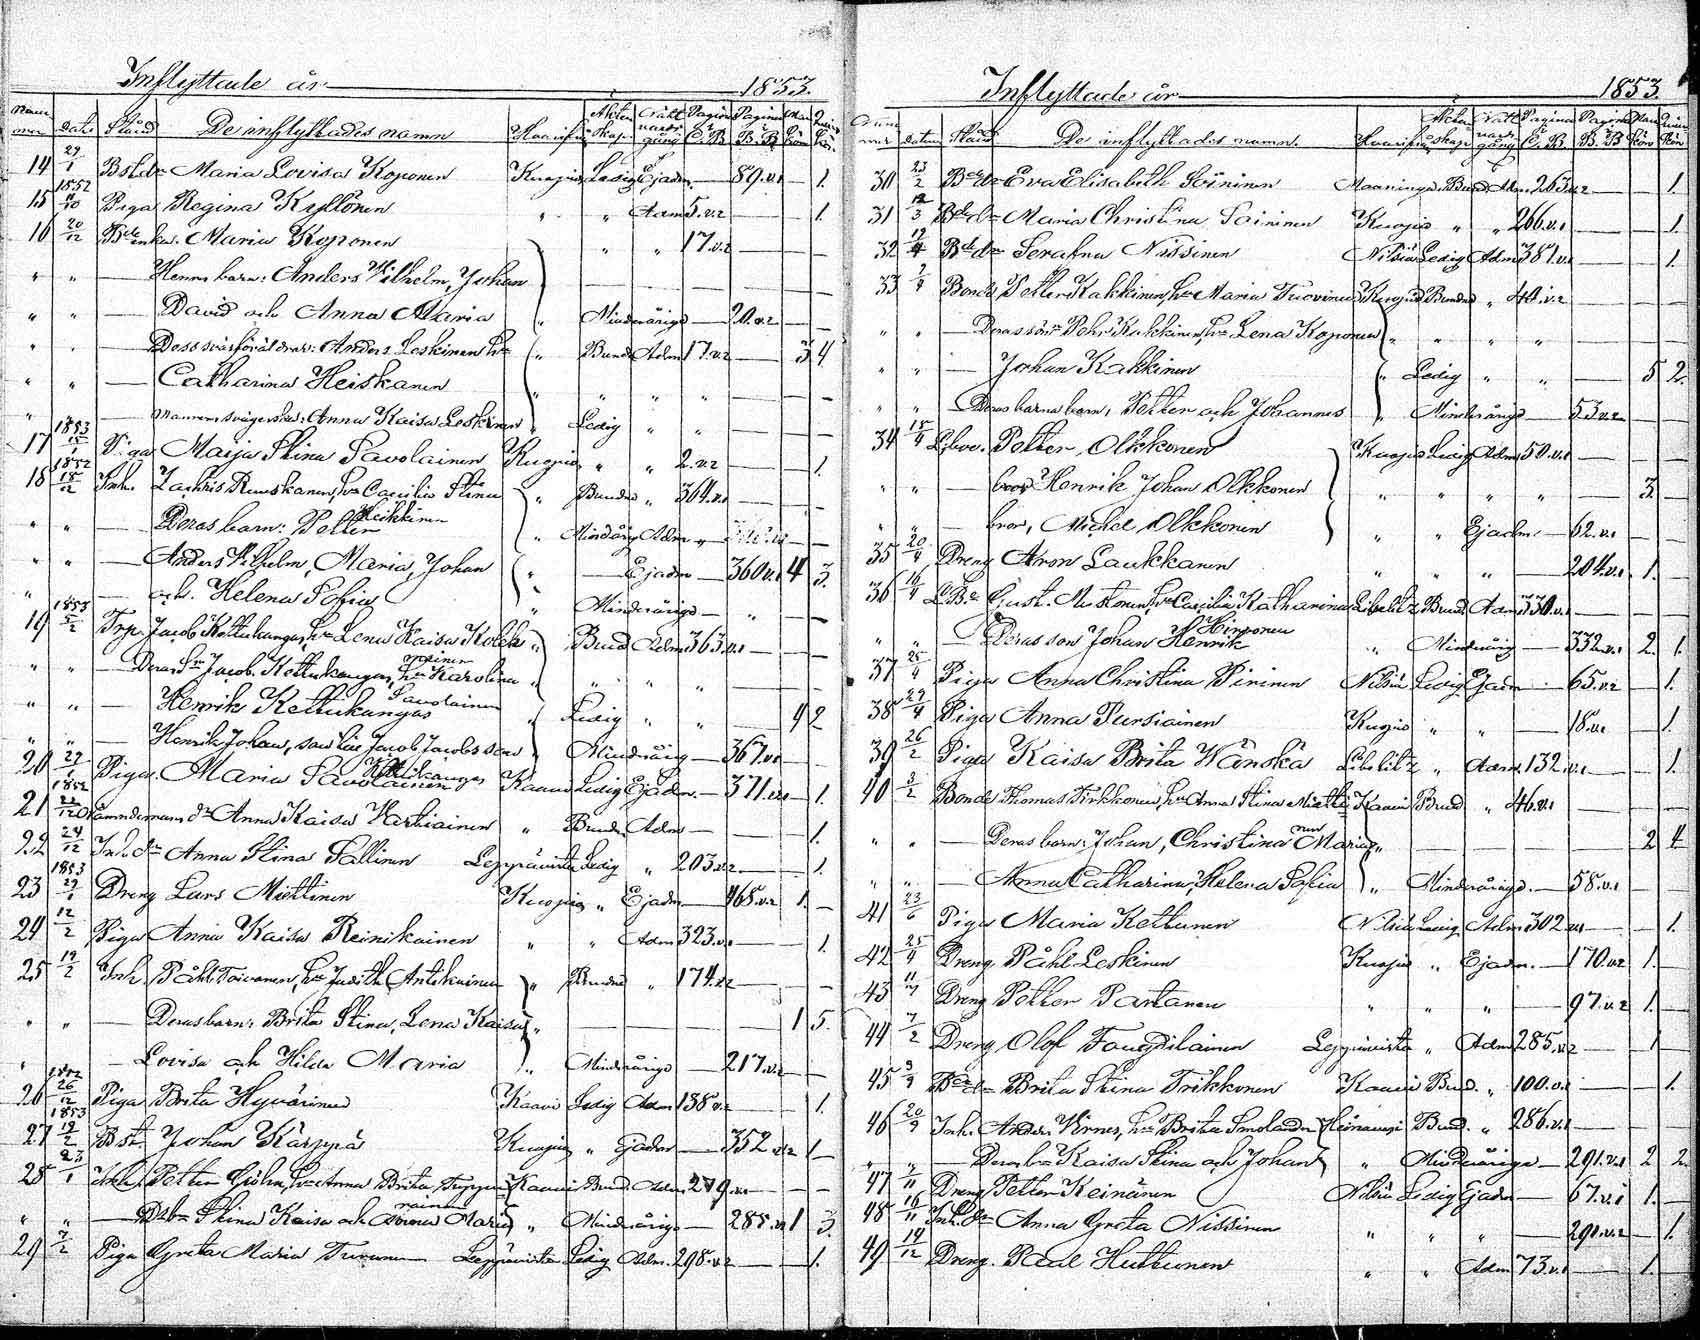 Inflyttade år 1853.
Num̄mer Datum Stånd De inflyttades namn Hvarifrån Äktenskap. Nattvardsgång Pagina i C.B. Pagina i B.B. Mankön Qvinkön
14 29/1 Bstdr Maria Lovisa Koponen Kuopio Ledig Ejadm. — 89.v.1 — 1.
1852
15 /10 Piga Regina Kyllönen " " Adm 5.v.2 — — 1.
16 20/12 Bdeenka. Maria Koponen " " 17.v.2 — — —
" " — Hennes barn: Anders Vilhelm, Johan
" " — David och Anna Maria " Minderårige — 20.v.2 — —
" " — Dess svärföräldrar: Anders Leskinen hu " Bunde Adm 17.v.2 — 3 4
" " — Catharina Heiskanen " " " " — — —
" — Mannens svägerska: Anna Kaisa Leskinen " Ledig " " — — —
1853
17 15/1 Piga Maija Stina Savolainen Kuopio " " 2.v.2 — — 1.
1852
18 18/12 Inh. Zachris Ruuskanen, hu Caecilia Stina " Bundne " 364.v.1 — — —
Heikkinen
" " — Deras barn: Petter " Minderårig Adm "
" " — Anders Vilhelm, Maria, Johan " — Ejadm — 360.v.1 4 3.
" — och Helena Sofia " Minderårige — " — —
1853
19 5/2 Trp. Jacob Kettukangas, hu Lena Kaisa " Bund Adm 363.v.1 — — —
" " — Deras Sn Jacob Kettukangas, hu Karolina " " " " — — —
Savolainen
" " — Henrik Kettukangas " Ledig " " — 4 2
" " — Henrik Johan, Jacob Jacobsson " Minderårig — 367.v.1 — —
Kettukangas
20 29/1 Piga Maria Savolainen Kaavi Ledig Ejadm. — 371. — 1.
1852
21 22/12 Nämndemans dr Anna Kaisa Hartiainen " Bunde Adm — — — 1.
22 24/12 Inh.dr Anna Stina Tallinen Leppävirta Ledig " 203.v.2 — — 1.
1853
23 29/1 Dreng Lars Miettinen Kuopio " Ejadm — 468.v.2 1. —
24 12/2 Piga Anna Kaisa Reinikainen " " Adm 323.v.1 — — 1.
25 19/2 Inh. Påhl Toivanen, hu Judith Antikainen " Bundne " 174.v.2 — — —
" " — Deras barn: Brita Stina, Lena Kaisa " — — — — 1 5.
" — Lovisa och Hilda Maria " Minderårige — 217.v.2 — —
1852
26 26/12 Piga Brita Hyvärinen Kaavi Ledig Adm 138.v.2 — — 1.
1853
27 19/2 Bst Johan Kärppä Kuopio " Ejadm — 352.v.2 1 —
28 23/1 Inh. Petter hu Anna Brita Kaavi Bund. Adm. — — —
" " — Dsbn Stina Kaisa och Anna Maria " Minderårige — 285.v.1 1 3.
29 7/2 Piga Greta Maria Turunen Leppävirta Ledig Adm. 298.v.2 — — 1.
Inflyttade år 1853.
Num̄mer datum Stånd De inflyttades namn. Hvarifrån Äktenskap Nattvardsgång Pagina i C.B. Pagina i B.B. Mankön Qvinkön
30 23/2 Bdedr Eva Elisabeth Soininen Maaninga Bund Adm. 263.v.2 — — 1.
31 12/3 Bdedr Maria Christina Soininen Kuopio " " 266.v.1 — — 1.
32 19/4 Bdedr Serafina Nissinen Nilsiä Ledig Adm 381.v.1 — — 1.
33 7/4 Bonde Petter Kakkinen, hu Maria Tuovinen Kuopio Bundne " 40.v.2 — — —
" " — Deras sonn Pehr Kakkinen, hu Lena Koponen " " " " — — —
" " — Johan Kakkinen " Ledig " " — 5 2.
" " — Deras barnabarn, Petter och Johannes " Minderårige — 53.v.2 — —
34 15/4 Petter Olkkonen Kuopio Ledig Adm 50.v.1 — — —
" " — bror Henrik Johan Olkkonen " " " " — 3. —
" " — bror, Michel Olkkonen " " Ejadm. — 62.v.1 — —
35 20/4 Dreng Aron Laukkanen " " " — 204.v.1. 1. —
36 16/4 L.Be Gust. Mustonen, hu Caecilia Katharina Libelitz Bund Adm 330.v.1 — — —
Hirvonen
" " — Deras son Johan Henrik " Minderårig — 332.v.1 2. 1.
37 25/4 Piga Anna Christina Pirinen Nilsiä Ledig Ejadm — 65.v.2 — 1.
38 29/4 Piga Anna Pursiainen Kuopio " " — 18.v.1 — 1.
39 26/2 Piga Kaisa Brita Wänskä Libelitz " Adm. 132.v.1 — — 1.
40 3/2 Bonde Thomas Tirkkonen, hu Anna Stina Miettinen Kaavi Bund " 46.v.1 — — —
" " — Deras barn: Johan, Christina Maria " — — — — 2 4
" " — Anna Catharina, Helena Sofia " Minderårige. — 58.v.1 — —
41 23/6 Piga Maria Kettunen Nilsiä Ledig Adm 302. — — 1.
42 25/4 Dreng. Påhl Leskinen Kuopio " Ejadm. — 170.v.2 1. —
43 11/7 Dreng Petter Partanen " " " — 97.v.2 1. —
44 7/2 Dreng Olof Leppävirta " Adm 285.v.2 — 1
45 9/9 Bdedr Brita Stina Tirkkonen Kaavi Bund. " 100.v.1 — — 1.
46 20/9 Inh. Ander. Kirnes, hu Brita Smolander Heinävesi Bund. " 286.v.1 — — —
" " — Deras bn Kaisa Stina och Johan " Minderårige — 291.v.1 2 2.
47 17/11 Dreng Petter Keinänen Nilsiä Ledig Ejadm — 67.v.1 1. —
48 16/11 Inh.dr Anna Greta Nissinen " " " — 290.v.2 — 1.
49 19/12 Dreng. Paul Huttunen " " Adm 73.v.1 — 1. —